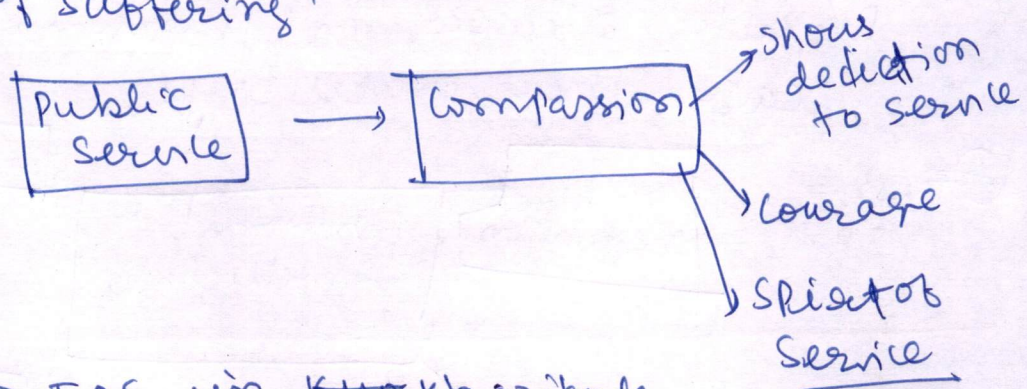 suffering
Public
Service
Compassion
shows
dediction
to service
Courage
Spirit of
Service